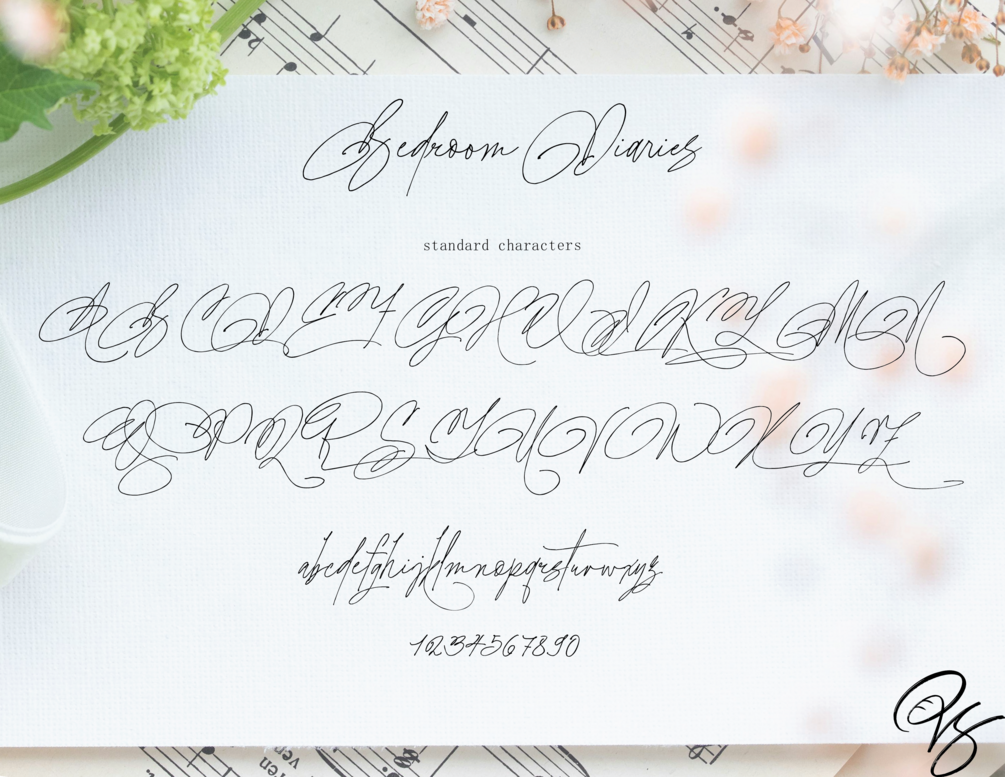 Bedroom Diaries
standard characters
ABCDEFGHIJKLMN
OPQRSTUVWXYZ
abcdefghijklmnopqrstuvwxyz
1234567890